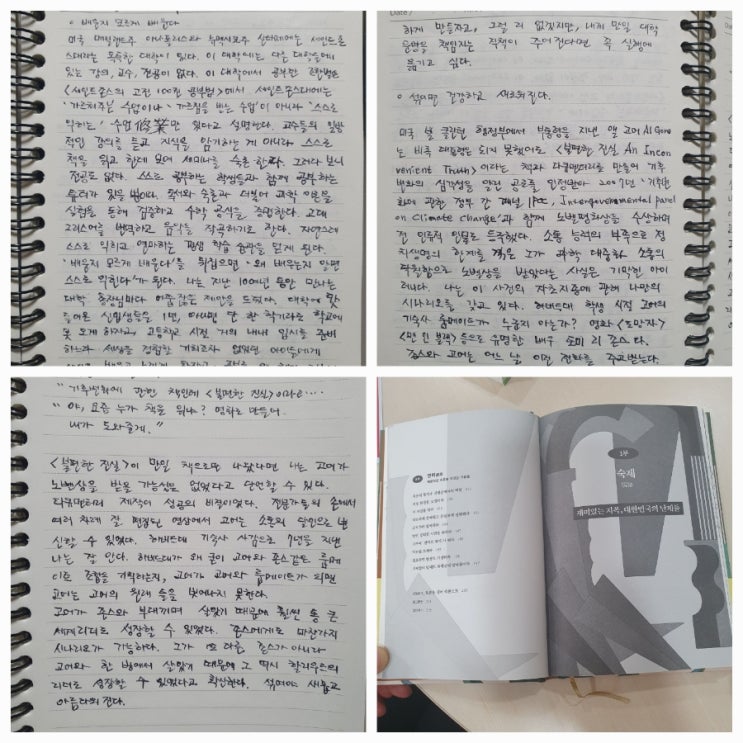 배우지 모르게 배운다
미국 메릴랜드주 아나폴리스와 뉴멕시코주 산타페에는 세인트존
스대라는 독특한 대학이 있다. 이 대학에는 다른 대학들에
있는 강의, 교수, 전공이 없다. 이 대학에서 공부한 조한별은
<세인트존스의 고전 100권 공부법>에서, 세인트존스대에는
'가르치는' 수업이나 '가르침을 받는 수업'이 아니라 '스스로
익히는' 수업 修業만 있다고 설명한다. 교수들의 일방
적인 강의를 듣고 지식을 암기하는 게 아니라 스스로
책을 읽고 함께 모여 세미나를 숙론한다. 그러다 보니
전공도 없다. 스스로 공부하는 학생들과 함께 공부하는
튜터가 있을 뿐이다. 독서와 숙론과 더불어 과학 이론을
실험을 통해 검증하고 수학 공식을 증명한다. 고대
그리스어를 번역하고 음악을 작곡하기도 한다. 자연스레
스스로 익히고 연마하는 평생 학습 습관을 얻게 된다.
'배우지 모르게 배운다'를 뒤집으면 '왜 배우는지 알면
스스로 익힌다'가 된다. 나는 지난 100여년 동안 만나는
대학 총장님마다 이런 제안을 드렸다. 대학에 갓
들어온 신입생들은 1년, 아니면 단 한 학기라도 학교에
못 오게 하자고. 고등학교 시절 거의 내내 입시를 준비
하느라 세상을 경험할 기회조차 없었던 아이들에게
하게 만들자고, 그럴 리 없겠지만, 내게 만일 대학
운영을 책임지는 직책이 주어진다면 꼭 실행에
옮기고 싶다.
섞이면 건강하고 새로워진다.
미국 빌 클린턴 행정부에서 부통령을 지낸 앨 고어 Al Gore
는 비록 대통령은 되지 못했어도 <불편한 진실 An Incon
venient Truth>이라는 책과 다큐멘터리를 만들어 기후
변화의 심각성을 알린 공로를 인정받아 2007년 '기후변
화에 관한 정부 간 패널 IPCC, Intergovernmental panel
on Climate Change'과 함께 노벨평화상을 수상하며
전 인류적 인물로 등극했다. 소통 능력의 부족으로 정
치생명의 한계를 겪은 그가 과학 대중화 소통의
탁월함으로 노벨상을 받았다는 사실은 기막힌 아이
러니다. 나는 이 사건의 자초지종에 관해 나만의
시나리오를 갖고 있다. 하버드대 학생 시절 고어의
기숙사 룸메이트가 누군지 아는가? 영화 <도망자>
<맨 인 블랙> 등으로 유명한 배우 토미 리 존스다.
존스와 고어는 어느 날 이런 전화를 주고받는다.
"기후변화에 관한 책인데 <불편한 진실>이라고‥‥
"야, 요즘 누가 책을 읽냐? 영화로 만들어.
내가 도와줄게."
<불편한 진실>이 만일 책으로만 나왔다면 나는 고어가
노벨상을 받을 가능성은 없었다고 단언할 수 있다.
다큐멘터리 제작이 성공의 비결이었다. 전문가들의 손에서
여러 차례 잘 편집된 영상에서 고어는 소통의 달인으로 변
신할 수 있었다. 하버드대 기숙사 사감으로 7년을 지낸
나는 잘 안다. 하버드대가 왜 굳이 고어와 존스같은 룸메
이트 조합을 기획하는지, 고어가 고어와 룸메이트가 되면
고어는 고어의 원래 술을 벗어나지 못한다.
고어가 존스와 부대끼며 살았기 때문에 훨씬 통 큰
세계리더로 성장할 수 있었다. 존스에게도 마찬가지
시나리오가 가능하다. 그가 또 다른 존스가 아니라
고어와 한 방에서 살았기 때문에 그 역시 할리우드의
리더로 성장할 수 있었다고 확신한다. 섞여야 새롭고
아름다워진다.
1부
숙제
재미있는 지옥, 대한민국의 난제들